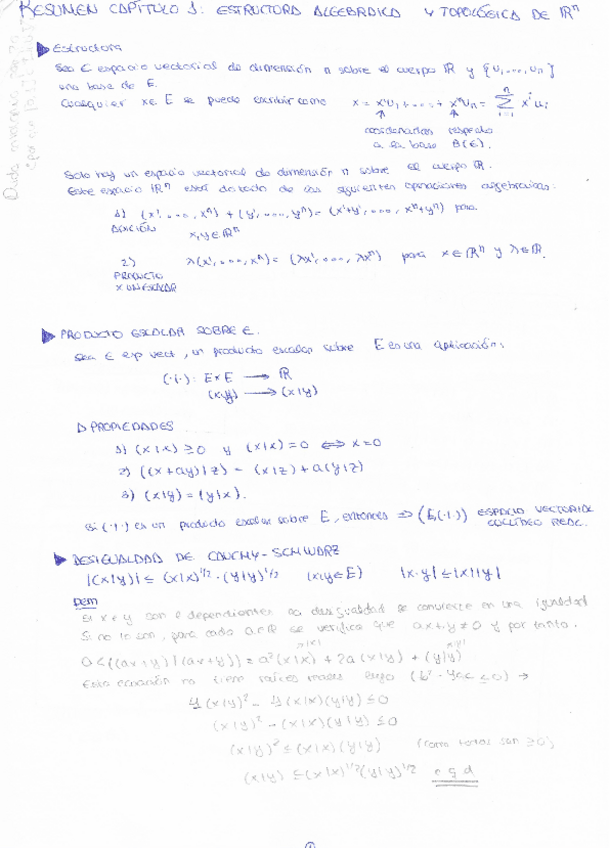 RESUMEN CAPÍTULO 1: ESTRUCTURA ALGEBRAICA Y TOPOLÓGICA DE ℝⁿ
Estructura
Sea E espacio vectorial de dimensión n sobre el cuerpo ℝ y {u₁,...,uₙ}
una base de E.
Cualquier x∈E se puede escribir como x = x¹u₁+...+xⁿuₙ = Σⁿᵢ₌₁ xⁱuᵢ
coordenadas respecto
a la base B(E).
Solo hay un espacio vectorial de dimensión n sobre el cuerpo ℝ.
Este espacio ℝⁿ está dotado de las siguientes operaciones algebraicas:
1) (x¹,...,xⁿ) + (y¹,...,yⁿ) = (x¹+y¹,...,xⁿ+yⁿ) para
ADICIÓN x,y∈ℝⁿ
2) λ(x¹,...,xⁿ) = (λx¹,...,λxⁿ) para x∈ℝⁿ y λ∈ℝ.
PRODUCTO
X UN ESCALAR
PRODUCTO ESCALAR SOBRE E.
Sea E esp vect, un producto escalar sobre E es una aplicación:
(·|·): E×E → ℝ
(x,y) → (x|y)
PROPIEDADES
1) (x|x) ≥0 y (x|x)=0 ⟺ x=0
2) ((x+ay)|z) = (x|z)+a(y|z)
3) (x|y) = (y|x).
Si (·|·) es un producto escalar sobre E, entonces ⇒ (E,(·|·)) ESPACIO VECTORIAL
EUCLÍDEO REAL.
DESIGUALDAD DE CAUCHY-SCHWARZ
|(x|y)| ≤ (x|x)^1/2 · (y|y)^1/2 (x,y∈E) |x·y| ≤ |x||y|
Dem
Si x e y son l dependientes la desigualdad se convierte en una igualdad
Si no lo son, para cada a∈ℝ se verifica que ax+y≠0 y por tanto.
0<((ax+y)|(ax+y)) = a²(x|x) + 2a(x|y) + (y|y)
Esta ecuación no tiene raíces reales luego (b²-4ac ≤0) →
4(x|y)² - 4(x|x)(y|y) ≤0
(x|y)² - (x|x)(y|y) ≤0
(x|y)² ≤ (x|x)(y|y) (como todos son ≥0)
(x|y) ≤ (x|x)^1/2 (y|y)^1/2 c q d
1